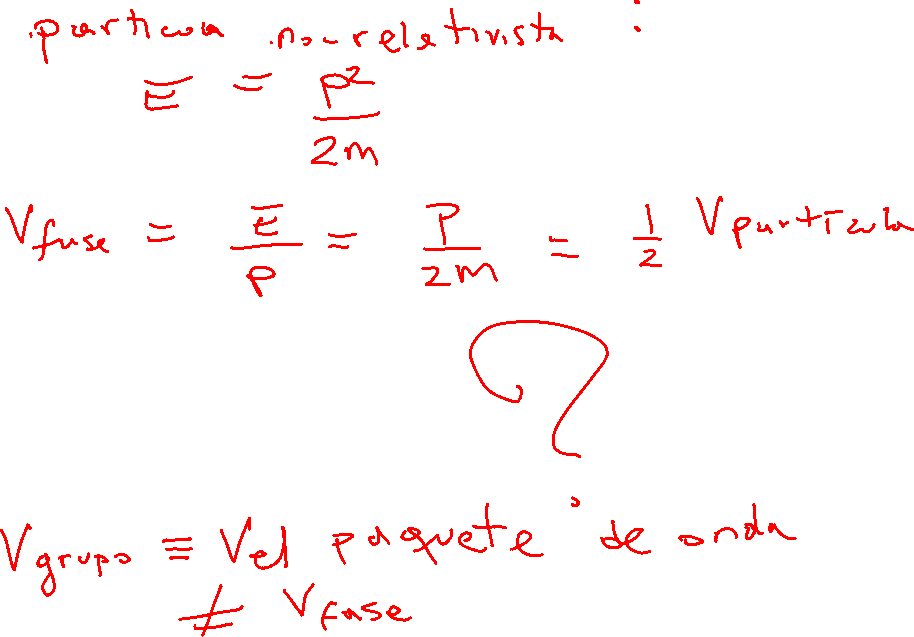 particua no-relativista :
E = p²/2m
V fase = E/p = P/2m = 1/2 V partícula
?
V grupo ≡ Vel paquete de onda
≠ V fase